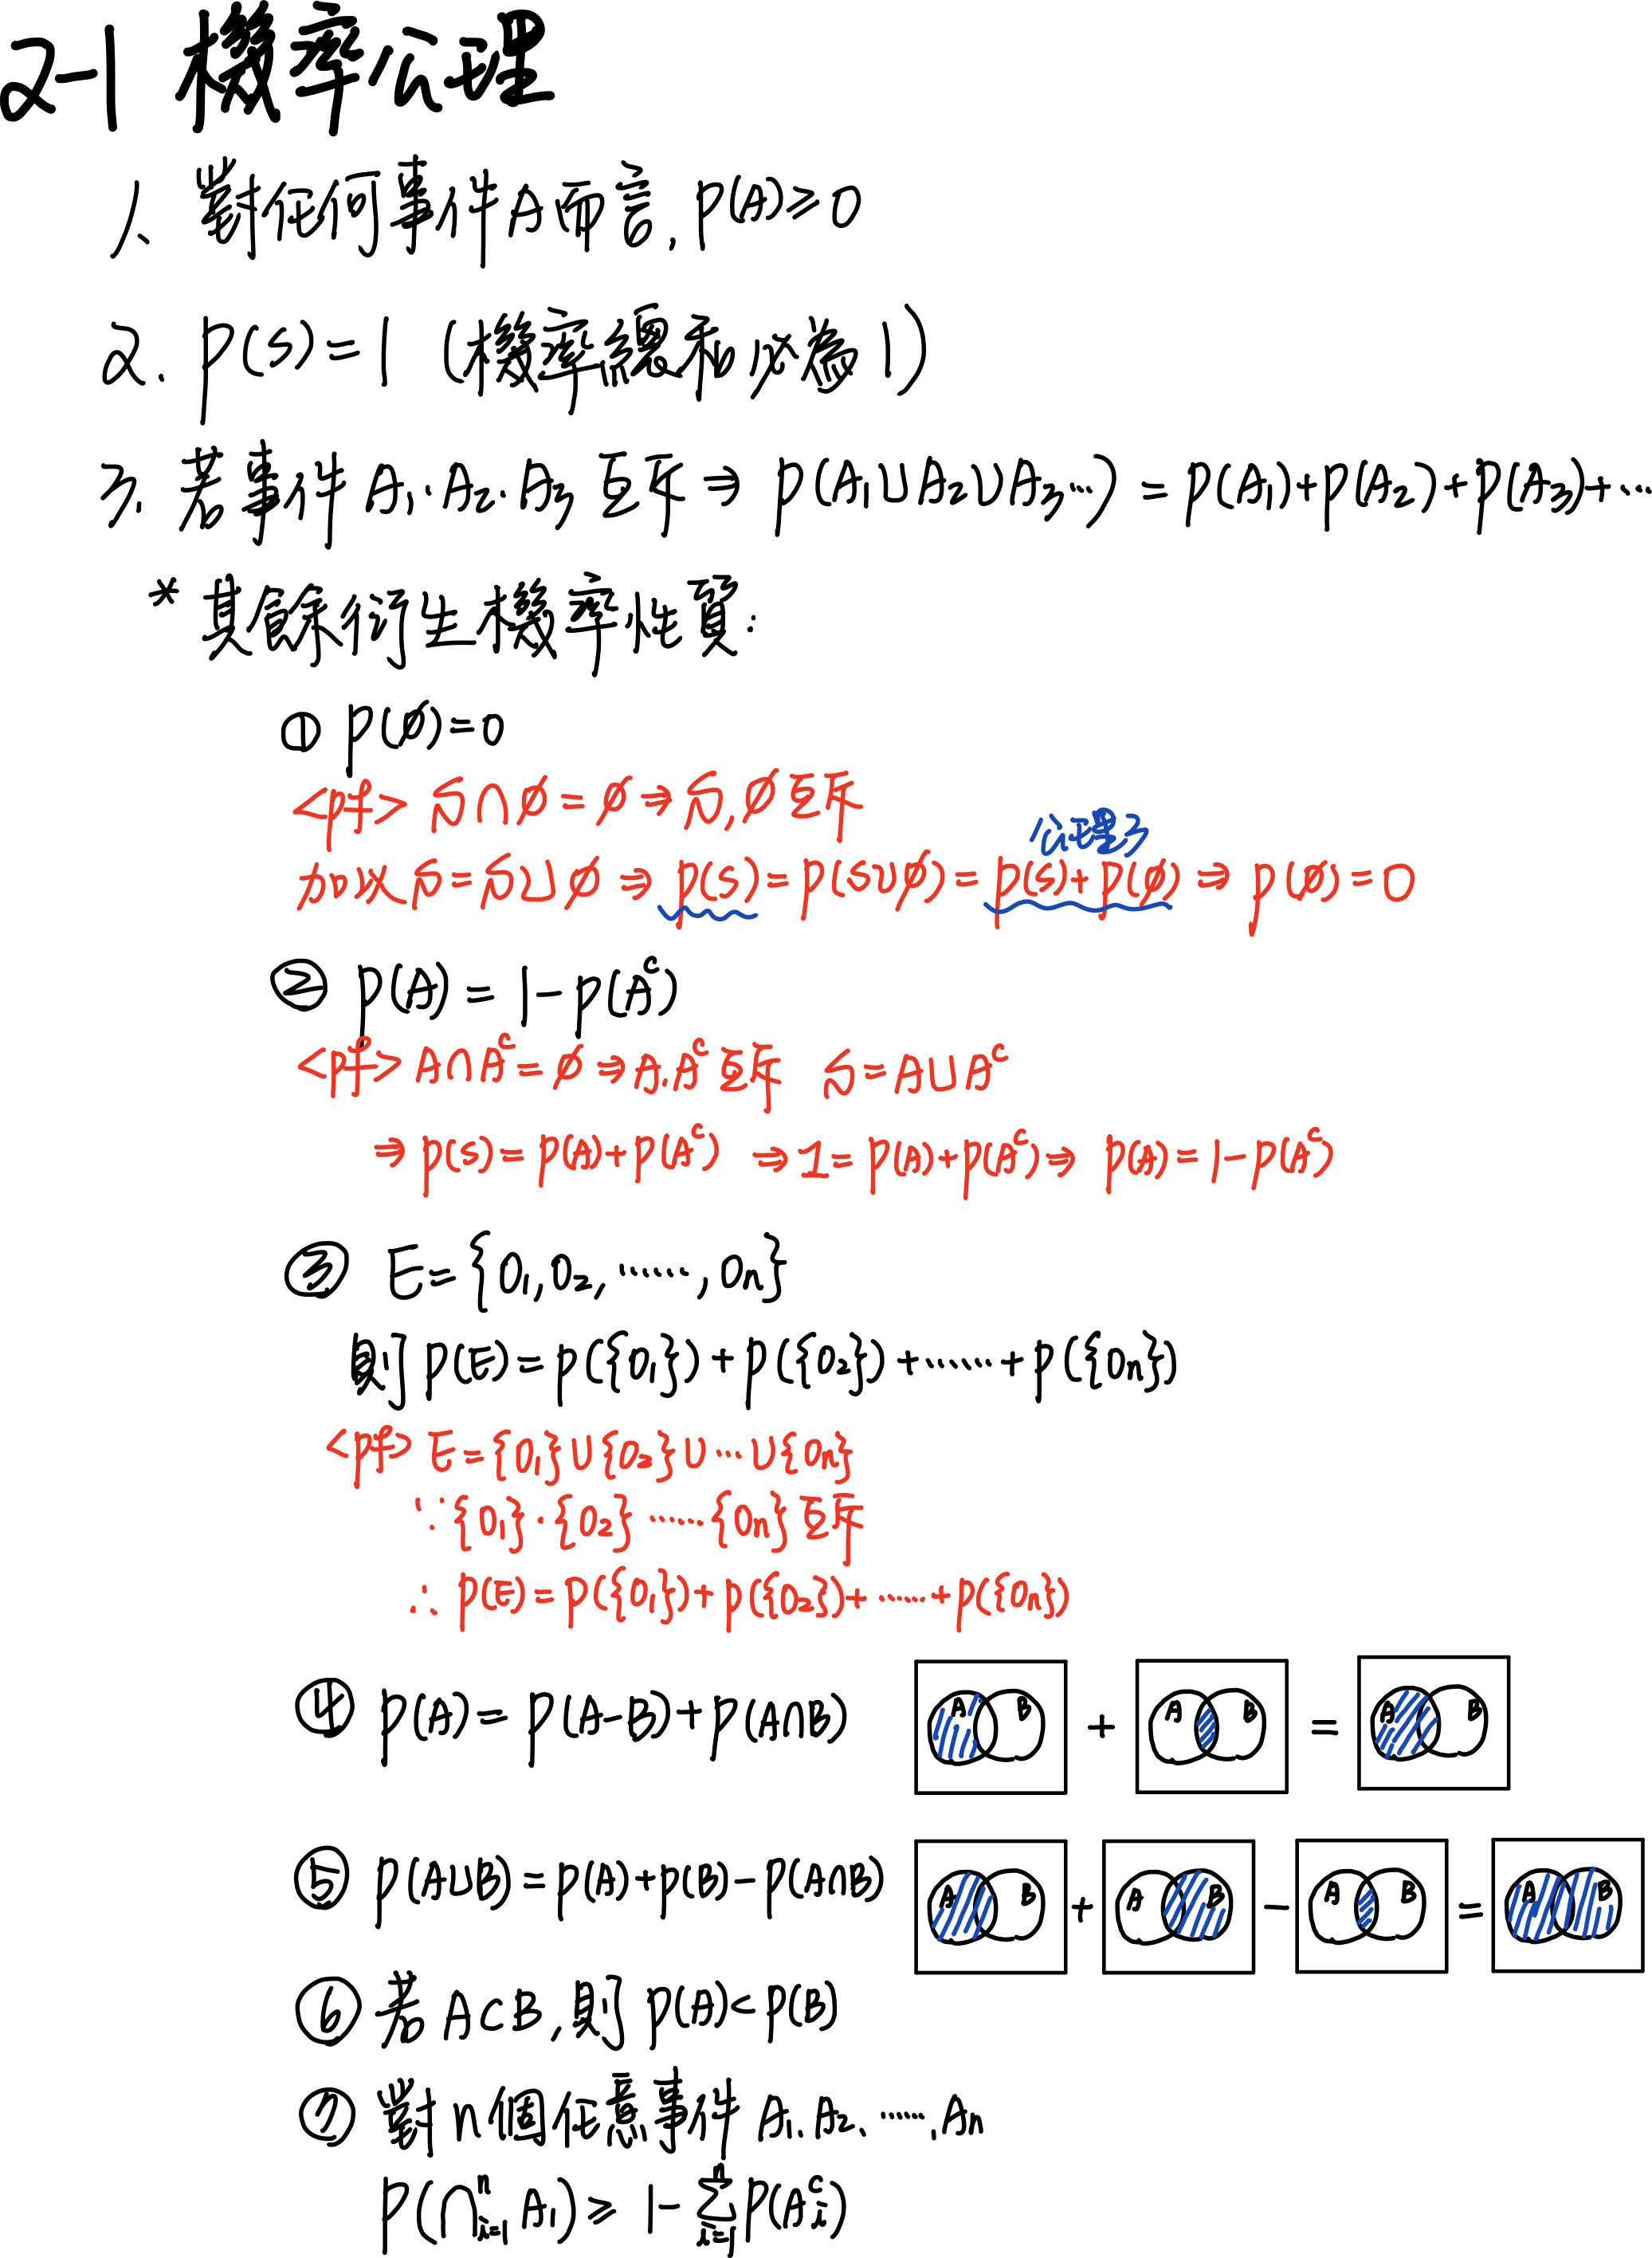 2-1 機率公理
1、對任何事件A而言,P(A)≥0
2. P(S)=1 (機率總和必為1)
3. 若事件 A₁.A₂.A₃ 互斥 ⇒ P(A₁∪A₂∪A₃...) = P(A₁)+P(A₂)+P(A₃)+...
* 其餘衍生機率性質:
① P(∅)=0
<pf> S∩∅=∅ ⇒ S,∅ 互斥
公理3
所以 S=S∪∅ ⇒ P(S)=P(S∪∅)=P(S)+P(∅) ⇒ P(∅)=0
② P(A) = 1-P(Aᶜ)
<pf> A∩Aᶜ=∅ ⇒ A.Aᶜ 互斥 S=A∪Aᶜ
⇒ P(S)=P(A)+P(Aᶜ) ⇒ 1=P(A)+P(Aᶜ) ⇒ P(A)=1-P(Aᶜ)
③ E={O₁,O₂,......,Oₙ}
則 P(E)=P({O₁})+P({O₂})+......+P({Oₙ})
<pf> E={O₁}∪{O₂}∪...∪{Oₙ}
∵{O₁}.{O₂}......{Oₙ}互斥
∴ P(E)=P({O₁})+P({O₂})+......+P({Oₙ})
④ P(A)=P(A-B)+P(A∩B) A B + A B = A B
⑤ P(A∪B)=P(A)+P(B)-P(A∩B) A B + A B - A B = A B
⑥ 若 A⊂B,則 P(A)<P(B)
⑦ 對n個任意事件 A₁.A₂、......,Aₙ
P(∩ⁿᵢ₌₁ A₁) ≥ 1-∑ⁿᵢ₌ⱼ P(Aᵢᶜ)